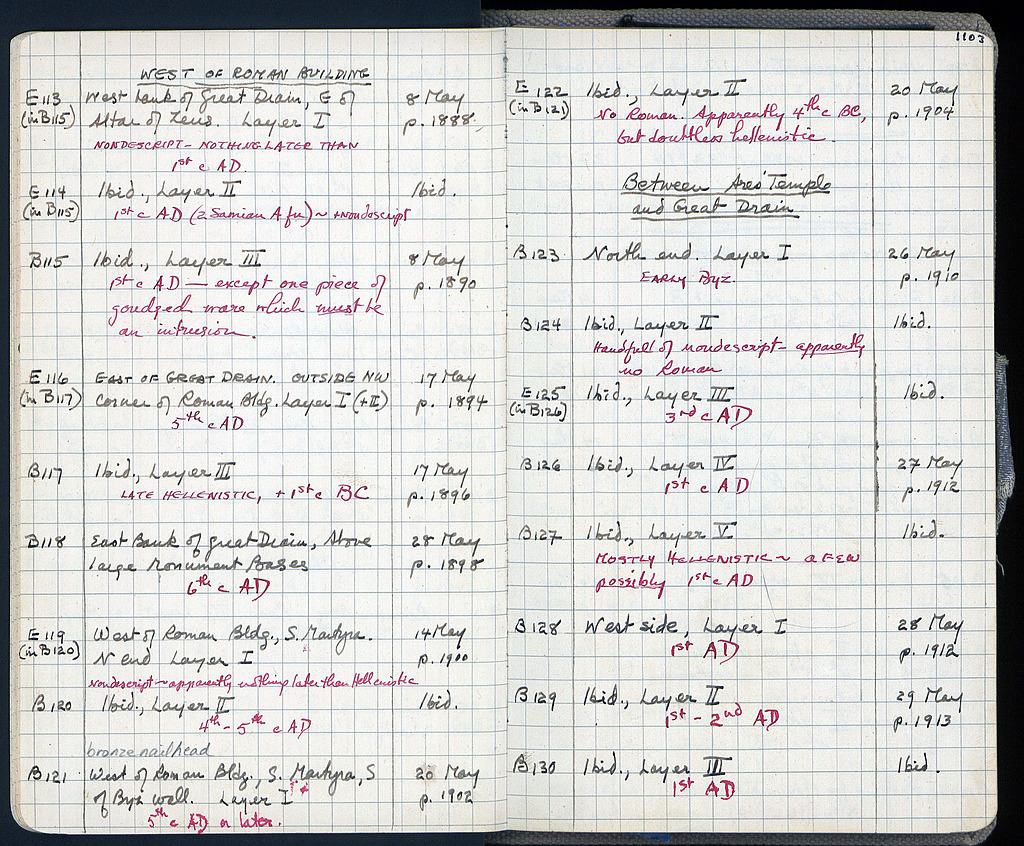 WEST OF ROMAN BUILDING
E 113 West bank of Great Drain, E of 8 May
(in B115) Altar of Zeus. Layer I p. 1888
NONDESCRIPT - NOTHING LATER THAN
1st c AD.
E 114 Ibid., Layer II Ibid.
(in B115) 1st c AD (2 Samian A fr) ~ + nondescript
B115 Ibid., Layer III 8 May
1st c AD — except one piece of p. 1890
gouged ware which must be
an intrusion.
E 116 EAST OF GREAT DRAIN. OUTSIDE NW 17 May
(in B117) corner of Roman Bldg. Layer I (+II) p. 1894
5th c AD
B117 Ibid., Layer III 17 May
LATE HELLENISTIC, + 1st c BC p. 1896
B118 East Bank of Great Drain, Above 28 May
large Monument Bases p. 1898
6th c AD
E 119 West of Roman Bldg., S. Martyra. 14 May
(in B120) N end Layer I p. 1900
Nondescript - apparently nothing later than Hellenistic
B120 Ibid., Layer II Ibid.
4th - 5th c AD
bronze nail head
B121 West of Roman Bldg., S. Martyra, S 20 May
of Byz wall. Layer I p. 1902
5th c AD or later.
1103
E 122 Ibid., Layer II 20 May
(in B121) No Roman. Apparently 4th c BC, p. 1904
but doubtless hellenistic.
Between Ares' Temple
and Great Drain
B123 North end. Layer I 26 May
EARLY BYZ. p. 1910
B124 Ibid., Layer II Ibid.
Handfull of nondescript - apparently
no Roman
E 125 Ibid., Layer III Ibid.
(in B126) 3rd c AD
B126 Ibid., Layer IV 27 May
1st c AD p. 1912
B127 Ibid., Layer V Ibid.
MOSTLY HELLENISTIC ~ A FEW
possibly 1st c AD
B128 West side, Layer I 28 May
1st AD p. 1912
B129 Ibid., Layer II 29 May
1st - 2nd AD p. 1913
B130 Ibid., Layer III Ibid.
1st AD